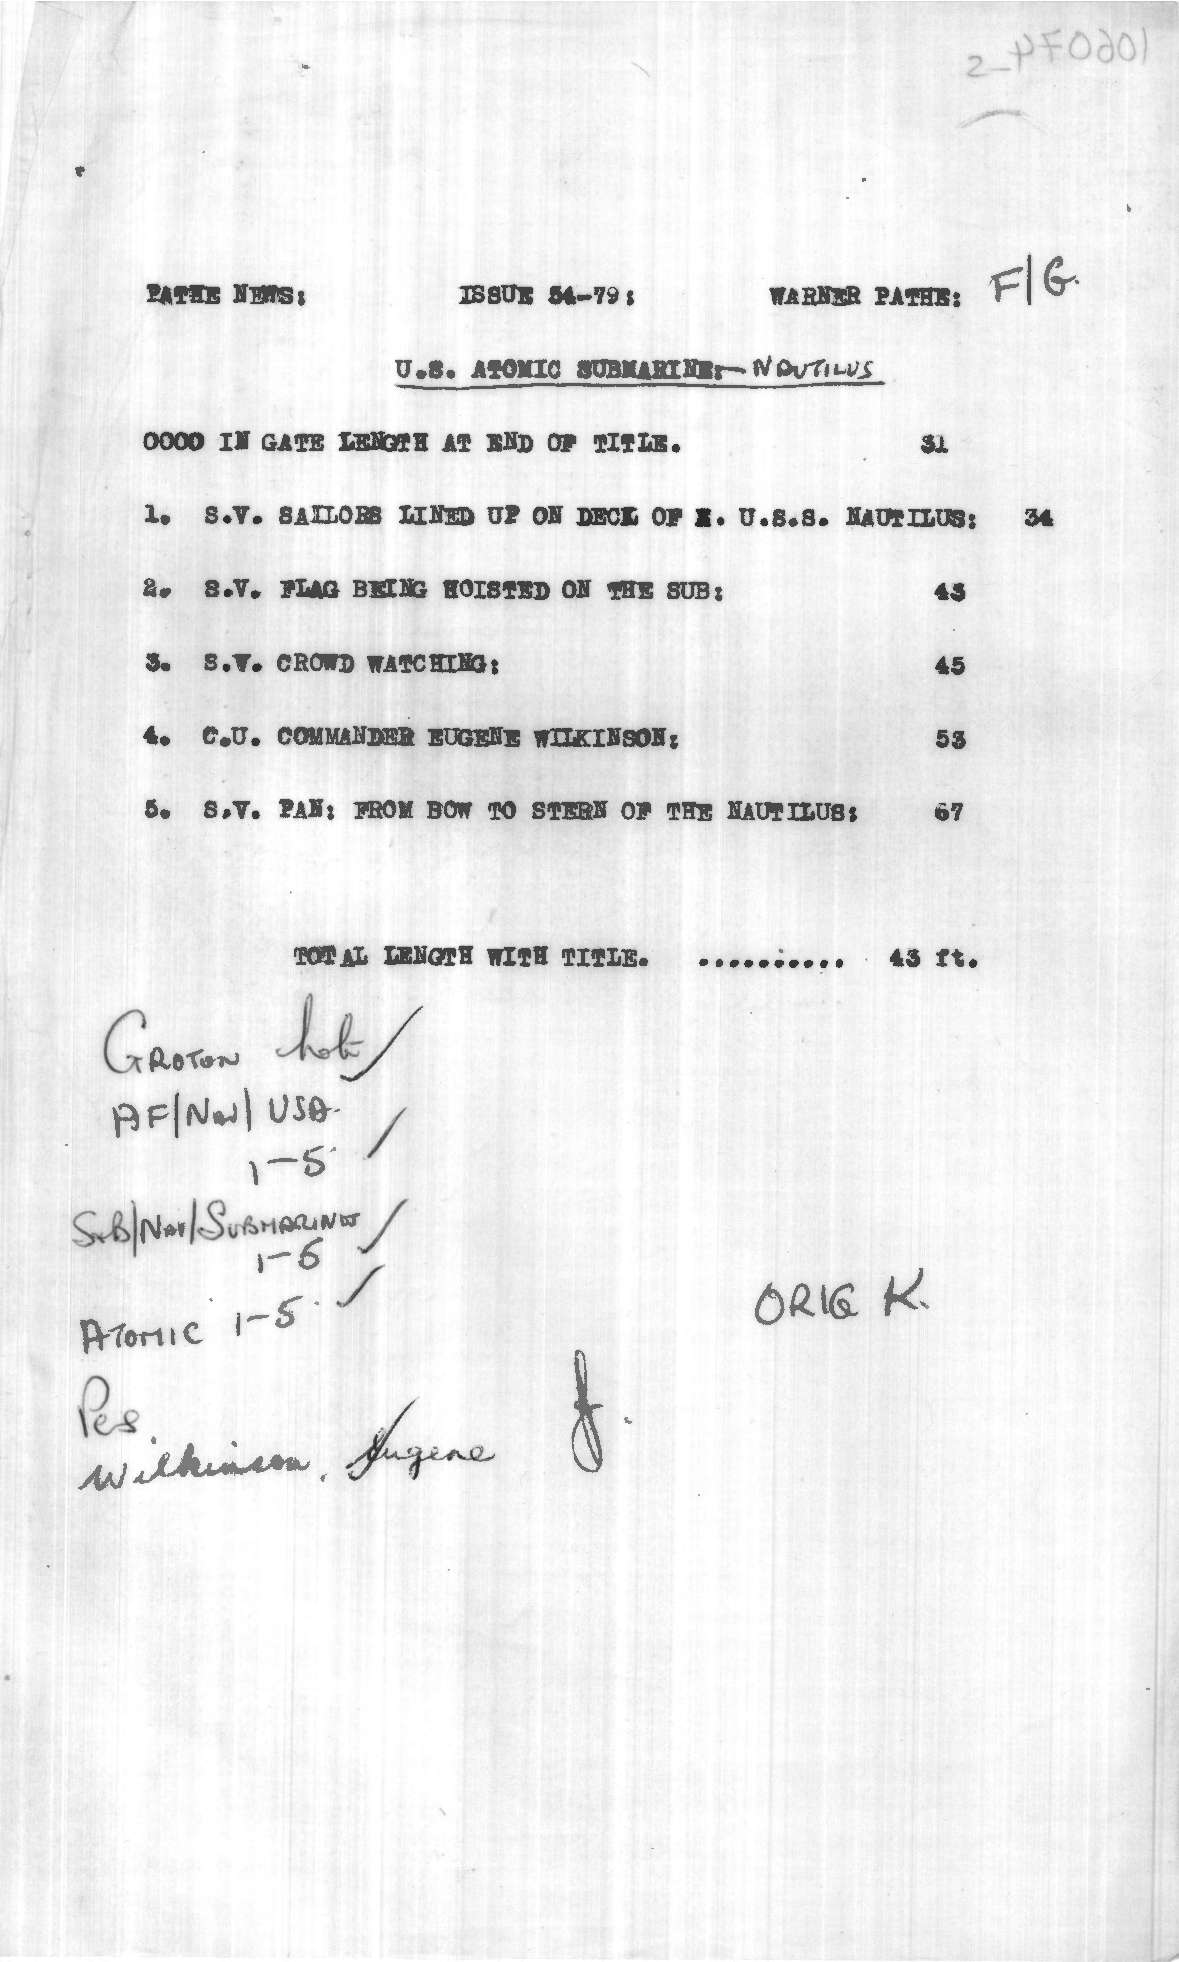 PATHE NEWS: ISSUE 54-79: WARNER PATHE: F/G.
U.S. ATOMIC SUBMARINE:- NAUTILUS
0000 IN GATE LENGTH AT END OF TITLE. 31
1. S.V. SAILORS LINED UP ON DECK OF X. U.S.S. NAUTILUS: 34
2. S.V. FLAG BEING HOISTED ON THE SUB: 43
3. S.V. CROWD WATCHING: 45
4. C.U. COMMANDER EUGENE WILKINSON: 53
5. S.V. PAN: FROM BOW TO STERN OF THE NAUTILUS: 67
TOTAL LENGTH WITH TITLE. .......... 43 ft.
GROTON
AF/Nav/USA.
1-5
Sub/Nav/SUBMARINES
1-5
ATOMIC 1-5
ORIG K.
Pers
Wilkinson, Eugene